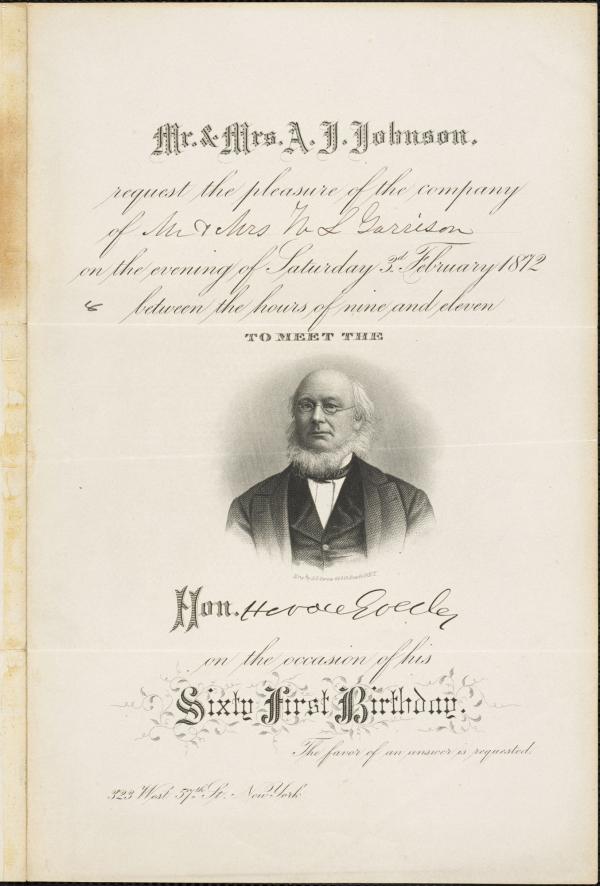 Mr. & Mrs. A. J. Johnson.
request the pleasure of the company
of Mr & Mrs W L Garrison
on the evening of Saturday 3d. February 1872
between the hours of nine and eleven
TO MEET THE
Hon. Horace Greeley
on the occasion of his
Sixty First Birthday.
The favor of an answer is requested.
323 West 57th St. New York